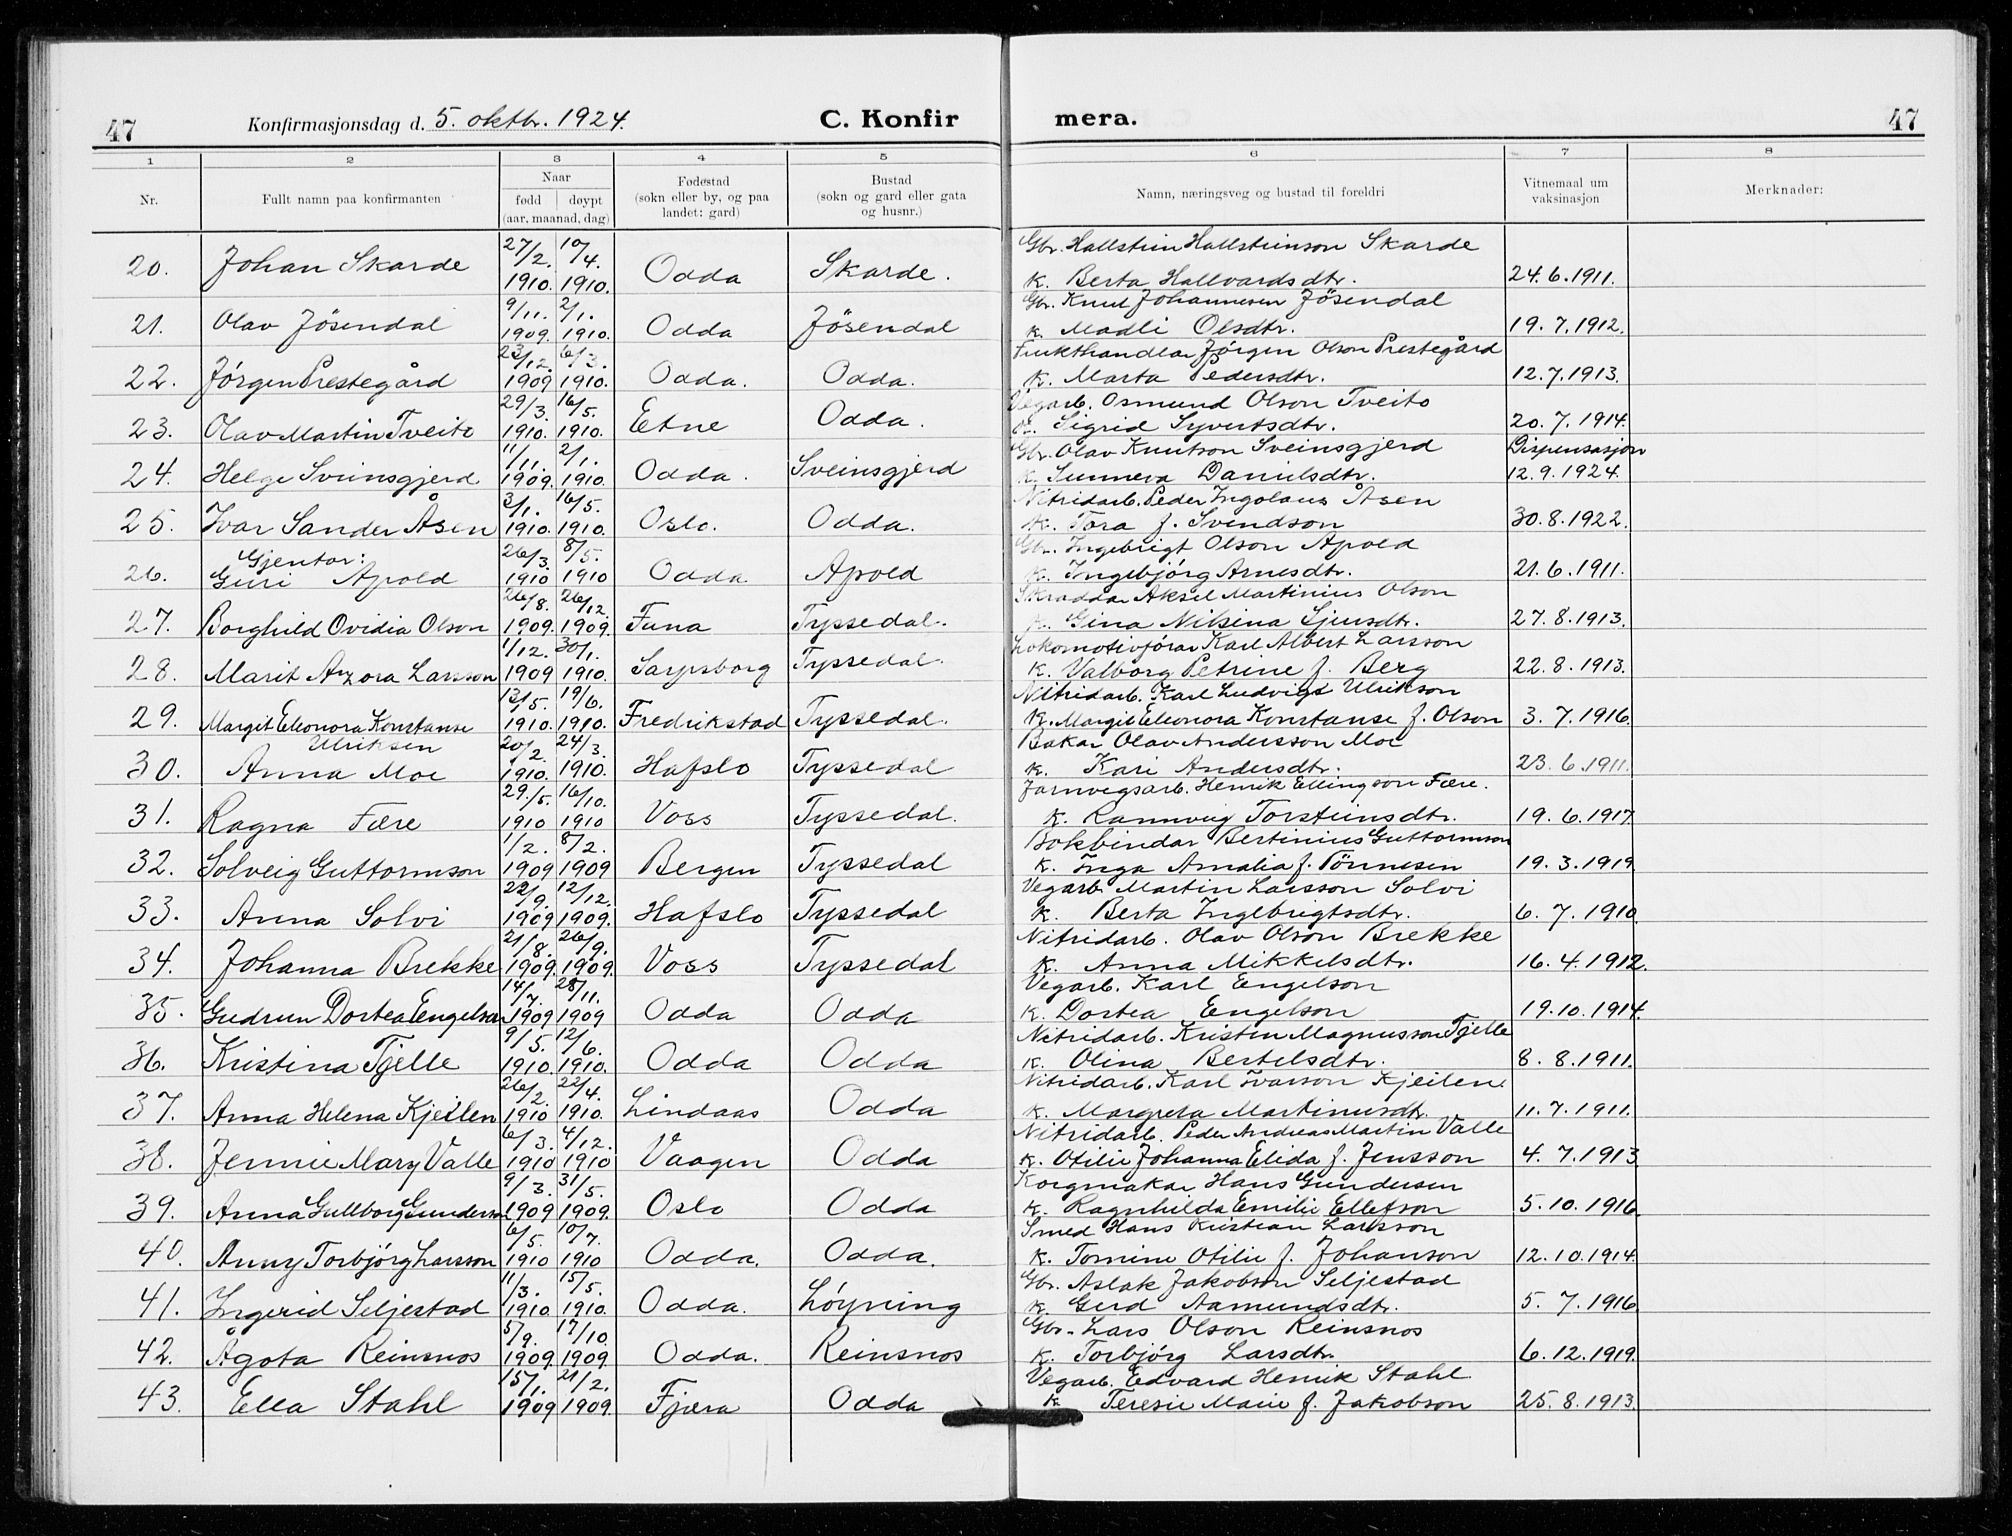 47 Konfirmasjonsdag d. 5. oktbr. 1924. C. Konfir mera. 47
1 2 3 4 5 6 7 8
Nr. Fullt namn paa konfirmanten Naar fødd døypt (aar, maanad, dag) Fødestad (sokn eller by, og paa landet: gard) Bustad (sokn og gard eller gata og husnr.) Namn, næringsveg og bustad til foreldri Vitnemaal um vaksinasjon Merknader:
27/2. 10/4. Gbr. Hallstein Hallsteinson Skarde
20. Johan Skarde 1910. 1910. Odda Skarde. K. Berta Hallvardsdtr. 24.6.1911.
9/11. 2/1. Gbr. Knut Johannesen Jösendal
21. Olav Jösendal 1909. 1910. Odda Jösendal K. Madli Olsdtr. 19.7.1912.
23/12. 6/3. Frukthandlar Jörgen Olson Prestegård
22. Jörgen Prestegård 1909 1910. Odda. Odda. K. Marta Pedersdtr. 12.7.1913.
29/3. 16/5. Vegarb. Osmund Olson Tveito
23. Olav Martin Tveito 1910. 1910. Etne Odda. K. Sigrid Syvertsdtr. 20.7.1914.
11/11. 2/1. Gbr. Olav Knutson Sveinsgjerd Dispensasjon
24. Helge Sveinsgjerd 1909. 1910. Odda. Sveinsgjerd K. Sunneva Danielsdtr. 12.9.1924.
3/1. 16/5. Nitridarb. Peder Ingolaus Åsen
25. Ivar Sander Åsen 1910. 1910. Oslo. Odda. K. Tora f. Svendson 30.8.1922.
Gjentor: 26/3. 8/5. Gbr. Ingebrigt Olson Apold
26. Guri Apold 1910 1910 Odda Apold K. Ingebjörg Arnesdtr. 21.6.1911.
26/8. 26/12 Skraddar Aksel Martinius Olson
27. Borghild Ovidia Olson 1909. 1909. Funa Tyssedal. K. Gina Nilsina Sjursdtr. 27.8.1913.
1/12. 30/1. Lokomotivförar Karl Albert Larsson
28. Marit Azora Larsson 1909 1910. Sarpsborg Tyssedal. K. Valborg Petrine f. Berg 22.8.1913.
13/5. 19/6. Nitridarb. Karl Ludvigs Ulrikson
29. Margit Eleonora Konstanse 1910. 1910. Fredrikstad Tyssedal. K. Margit Eleonora Konstanse f. Olson 3.7.1916.
Ulriksen 20/2. 24/3. Bakar Olav Andersson Moe
30. Anna Moe 1910. 1910. Hafslo Tyssedal K. Kari Andersdtr. 23.6.1911.
29./5. 16/10. Jarnvegsarb. Henrik Ellingson Fære.
31. Ragna Fære 1910 1910 Voss Tyssedal. K. Rannveig Torsteinsdtr. 19.6.1917.
1/2. 8/2. Bokbindar Bertinius Guttormson
32. Solveig Guttormson 1909 1909 Bergen Tyssedal K. Inga Amalia f. Tönnesen 19.3.1919.
22/9. 12/12. Vegarb. Martin Larsson Solvi
33. Anna Solvi 1909 1909. Hafslo Tyssedal K. Berta Ingebrigtsdtr. 6.7.1910.
21/8. 26/9. Nitridarb. Olav Olson Brekke
34. Johanna Brekke 1909. 1909. Voss Tyssedal K. Anna Mikkelsdtr. 16.4.1912.
14/7. 28/11. Vegarb. Karl Engelson
35. Gudrun Dortea Engelson 1909 1909 Odda Odda K. Dortea Engelson 19.10.1914.
9/5. 12/6. Nitridarb. Kristen Magnusson Tjelle
36. Kristina Tjelle 1910. 1910. Odda Odda K. Olina Bertelsdtr. 8.8.1911.
26/2. 22/4. Nitridarb. Karl Ivarson Kjeilen
37. Anna Helena Kjeilen 1910 1910. Lindaas Odda K. Margreta Martinusdtr. 11.7.1911.
6/3. 4/12. Nitridarb. Peder Andreas Martin Valle
38. Jennie Mary Valle 1910 1910 Vaagen Odda K. Otilie Johanna Elida f. Jensson 4.7.1913
9/3. 31/5. Korgmakar Hans Gundersen
39. Anna Gullborg Gunderson 1909 1909. Oslo Odda K. Ragnhilda Emilie Ellefson 5.10.1916.
6/5. 10/7. Smed Hans Kristian Larsson
40. Anny Torbjörg Larsson 1910 1910 Odda. Odda. K. Tomine Otilie f. Johanson 12.10.1914.
11/3. 15/5. Gbr. Aslak Jakobson Seljestad
41. Ingerid Seljestad 1910. 1910. Odda. Löyning K. Gerd Aamundsdtr. 5.7.1916
5/9. 17/10. Gbr. Lars Olson Reinsnos
42. Ågota Reinsnos 1909. 1909. Odda. Reinsnos K. Torbjörg Larsdtr. 6.12.1919.
15/1. 21/2. Vegarb. Edvard Henrik Stahl
43. Ella Stahl 1909 1909. Fjæra Odda K Teresie Marie f. Jakobson 25.8.1913.